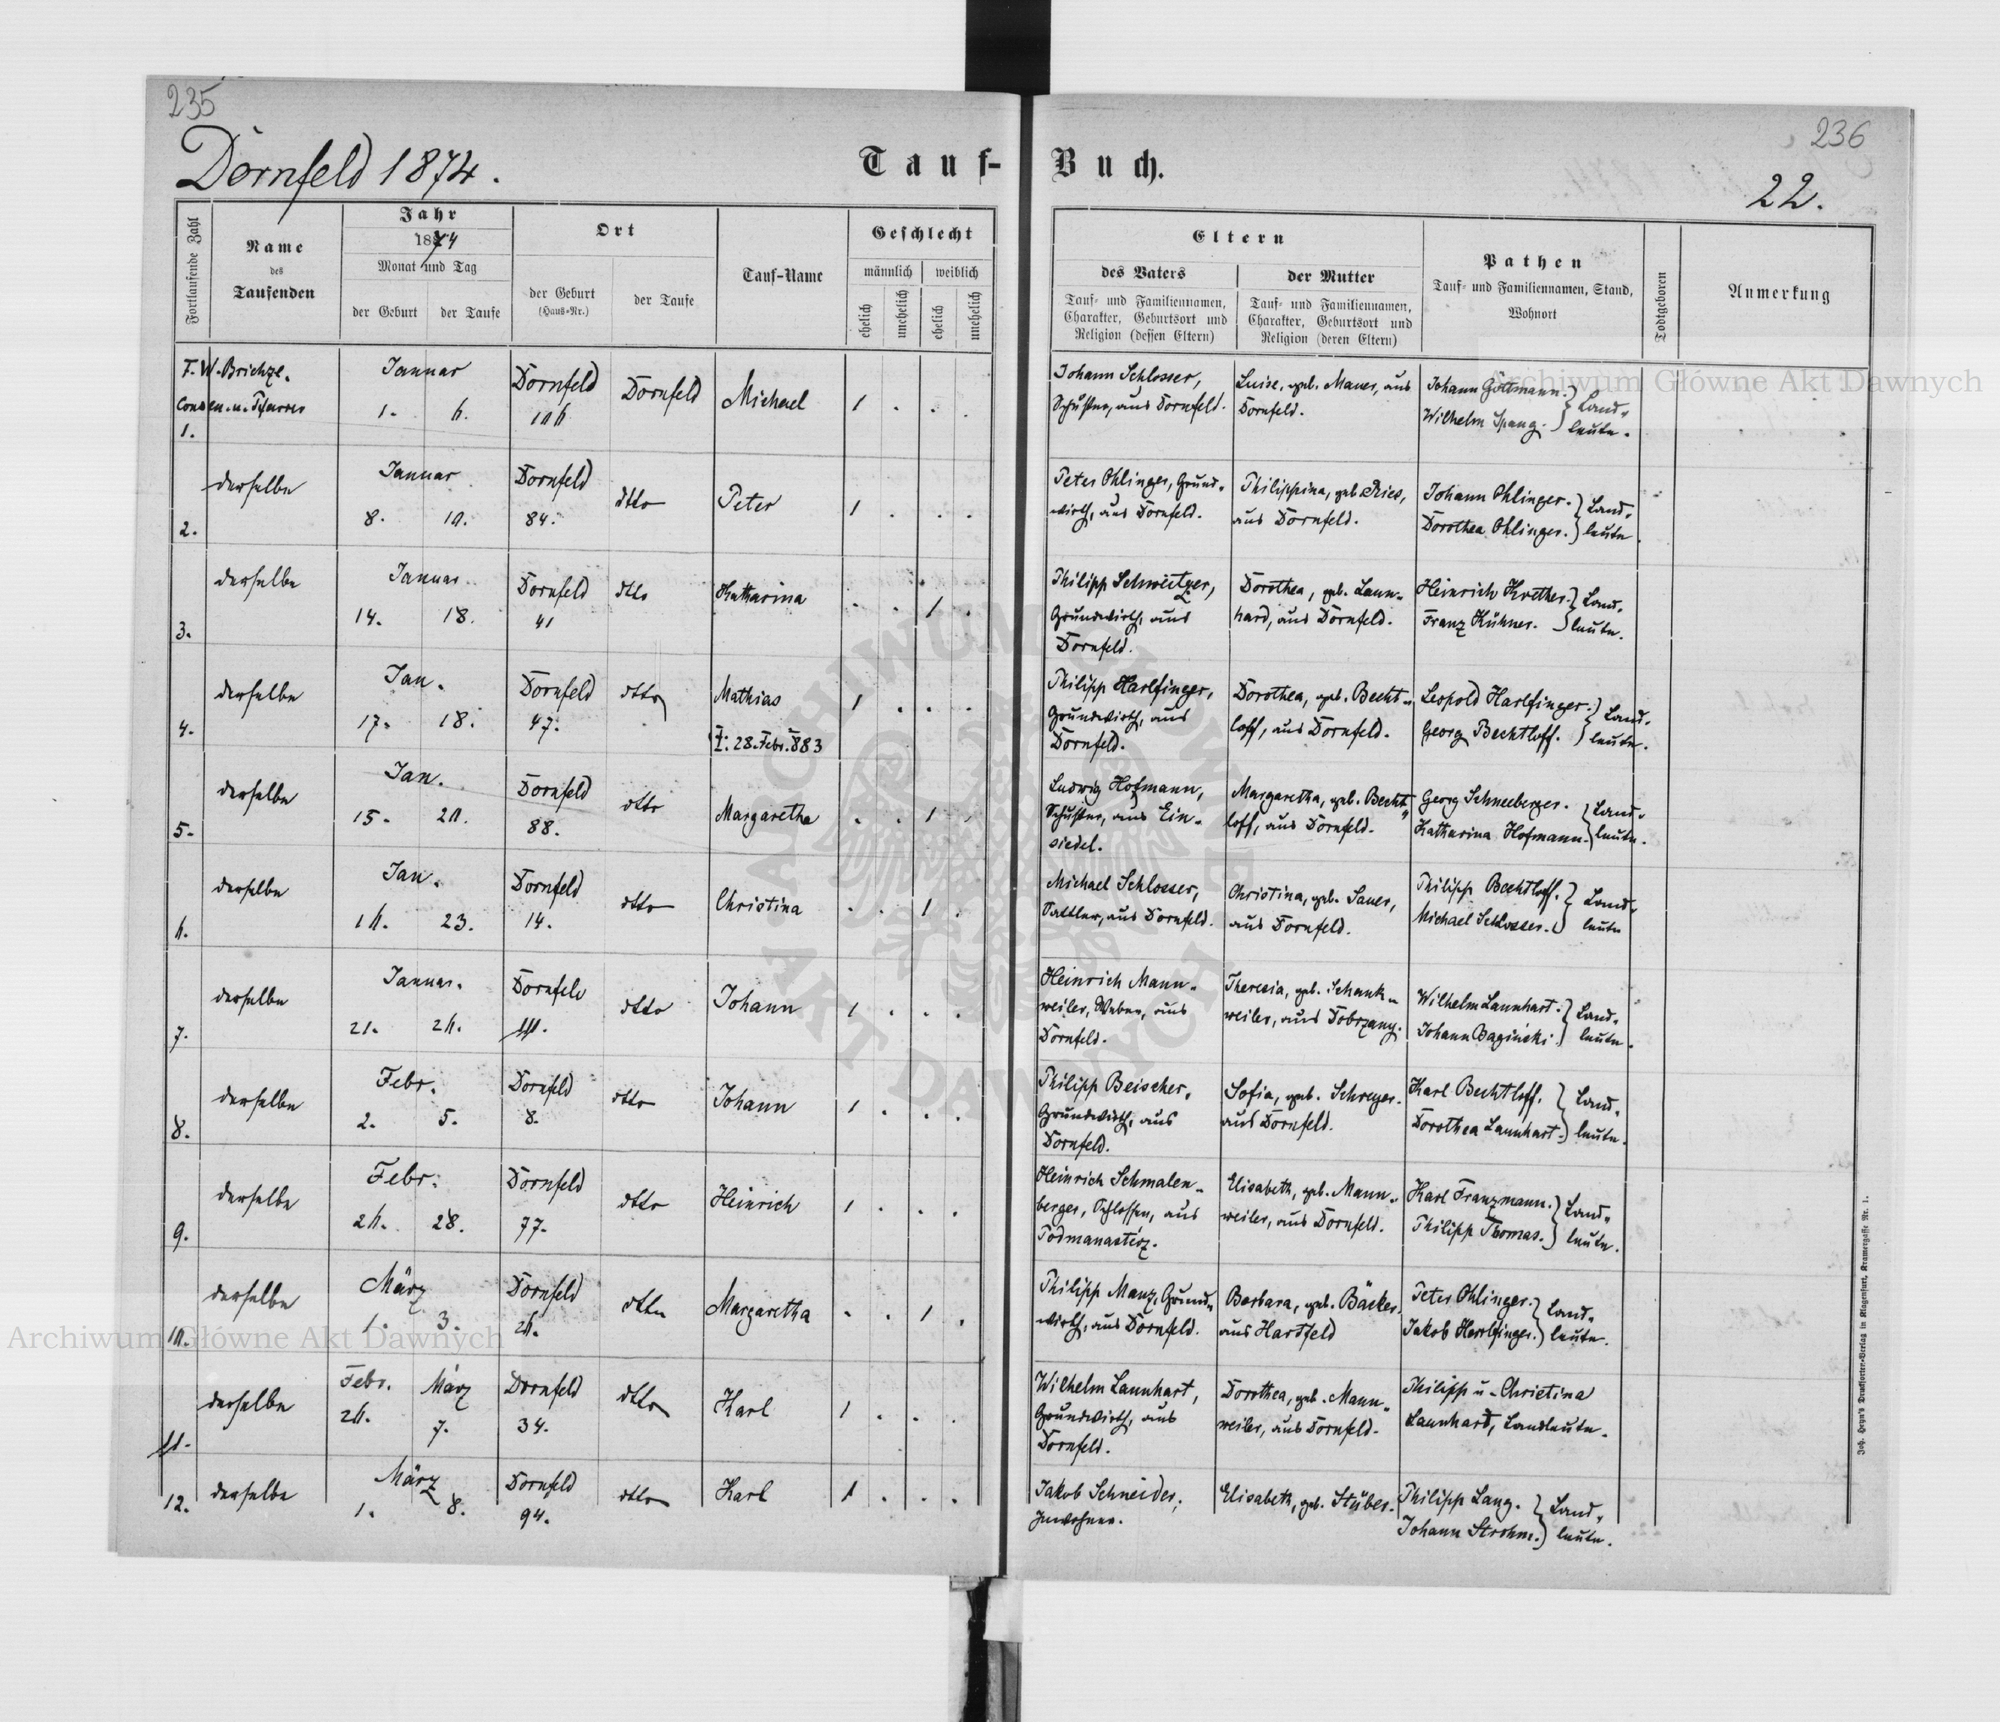 235
236
Dornfeld 1874.
Tauf-Buch.
22.
Fortlaufende Zahl
Name
des
Taufenden
Jahr
1874
Monat und Tag
der Geburt
der Taufe
Ort
der Geburt
(Haus-Nr.)
der Taufe
Tauf-Name
Geschlecht
männlich
weiblich
ehelich
unehelich
ehelich
unehelich
Eltern
des Vaters
Tauf- und Familiennamen,
Charakter, Geburtsort und
Religion (dessen Eltern)
der Mutter
Tauf- und Familiennamen,
Charakter, Geburtsort und
Religion (deren Eltern)
Pathen
Tauf- und Familiennamen, Stand,
Wohnort
Todtgeboren
Anmerkung
1.
Januar
1. 6.
Dornfeld
Dornfeld
Michael
1 . . .
Johann Schlosser,
Schuster, aus Dornfeld.
Luise, geb. Mauer, aus
Dornfeld.
Johann Göttmann.
Wilhelm Spang.
Landleute.
2.
derselbe
Januar
8. 10.
Dornfeld
84.
dtto
Peter
1 . . .
Peter Ohlinger, Grund-
wirth, aus Dornfeld.
Philippina, geb. Ries,
aus Dornfeld.
Johann Ohlinger.
Dorothea Ohlinger.
Landleute.
3.
derselbe
Januar
14. 18.
Dornfeld
41
dtto
Katharina
. . 1 .
Philipp Schweitzer,
Grundwirth, aus
Dornfeld.
Dorothea, geb. Laun-
hard, aus Dornfeld.
Heinrich Koether.
Franz Kühner.
Landleute.
4.
derselbe
Jan.
17. 18.
Dornfeld
47.
dtto
Mathias
†. 28. Febr. 883
1 . . .
Philipp Harlfinger,
Grundwirth, aus
Dornfeld.
Dorothea, geb. Becht-
loff, aus Dornfeld.
Leopold Harlfinger.
Georg Bechtloff.
Landleute.
5.
derselbe
Jan.
15. 20.
Dornfeld
88.
dtto
Margaretha
. . 1 .
Ludwig Hofmann,
Schuster, aus Ein-
siedel.
Margaretha, geb. Becht-
loff, aus Dornfeld.
Georg Schneeberger.
Katharina Hofmann.
Landleute.
6.
derselbe
Jan.
16. 23.
Dornfeld
14.
dtto
Christina
. . 1 .
Michael Schlosser,
Sattler, aus Dornfeld.
Christina, geb. Sauer,
aus Dornfeld.
Philipp Bechtloff.
Michael Schlosser.
Landleute
7.
derselbe
Januar.
21. 26.
Dornfeld
dtto
Johann
1 . . .
Heinrich Mann-
weiler, Weber, aus
Dornfeld.
Theresia, geb. Schank-
weiler, aus Dobrzany.
Wilhelm Launhart.
Johann Baginski.
Landleute.
8.
derselbe
Febr.
2. 5.
Dornfeld
8.
dtto
Johann
1 . . .
Philipp Beischer,
Grundwirth, aus
Dornfeld.
Sofia, geb. Schreyer.
aus Dornfeld.
Karl Bechtloff.
Dorothea Launhart.
Landleute.
9.
derselbe
Febr.
26. 28.
Dornfeld
77.
dtto
Heinrich
1 . . .
Heinrich Schmalen-
berger, Schlosser, aus
Podmanasterz.
Elisabeth, geb. Mann-
weiler, aus Dornfeld.
Karl Franzmann.
Philipp Thomas.
Landleute.
10.
derselbe
März
1. 3.
Dornfeld
26.
dtto
Margaretha
. . 1 .
Philipp Manz, Grund-
wirth, aus Dornfeld.
Barbara, geb. Bäcker,
aus Hartfeld
Peter Ohlinger.
Jakob Harlfinger.
Landleute.
11.
derselbe
Febr. März
26. 7.
Dornfeld
34.
dtto
Karl
1 . . .
Wilhelm Launhart,
Grundwirth, aus
Dornfeld.
Dorothea, geb. Mann-
weiler, aus Dornfeld.
Philipp u. Christina
Launhart, Landleute.
12.
derselbe
März
1. 8.
Dornfeld
94.
dtto
Karl
1 . . .
Jakob Schneider,
Inwohner.
Elisabeth, geb. Stüber.
Philipp Lang.
Johann Strohm.
Landleute.
Archiwum Główne Akt Dawnych
Archiwum Główne Akt Dawnych